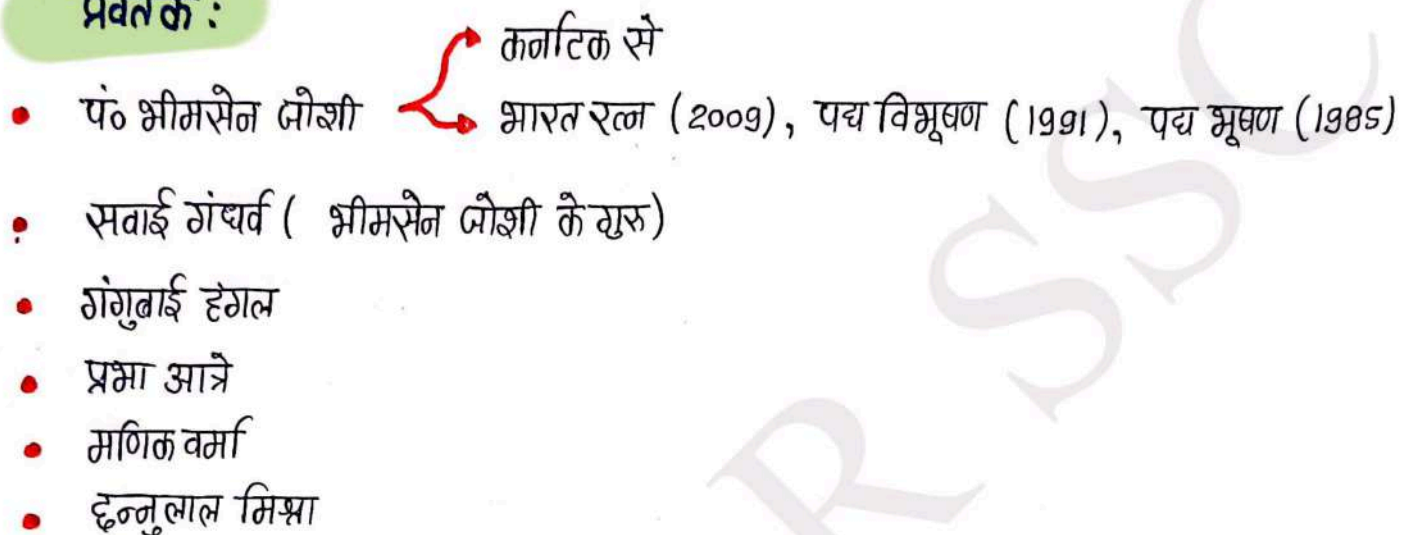 प्रवर्तक :
कर्नाटक से
• पं॰ भीमसेन जोशी भारत रत्न (2009), पद्म विभूषण (1991), पद्म भूषण (1985)
• सवाई गंधर्व ( भीमसेन जोशी के गुरु)
• गंगुबाई हंगल
• प्रभा आत्रे
• मणिक वर्मा
• छन्नुलाल मिश्रा
R SSC